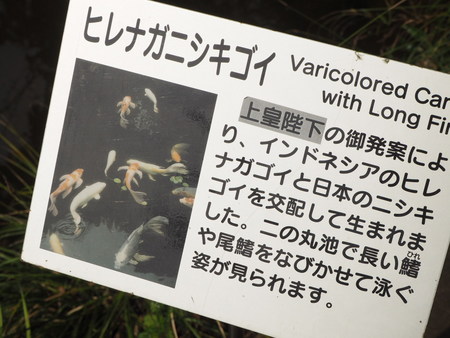 ヒレナガニシキゴイ
Varicolored Car
with Long Fin
上皇陛下の御発案によ
り、インドネシアのヒレ
ナガゴイと日本のニシキ
ゴイを交配して生まれま
した。二の丸池で長い鰭
ひれ
や尾鰭をなびかせて泳ぐ
姿が見られます。